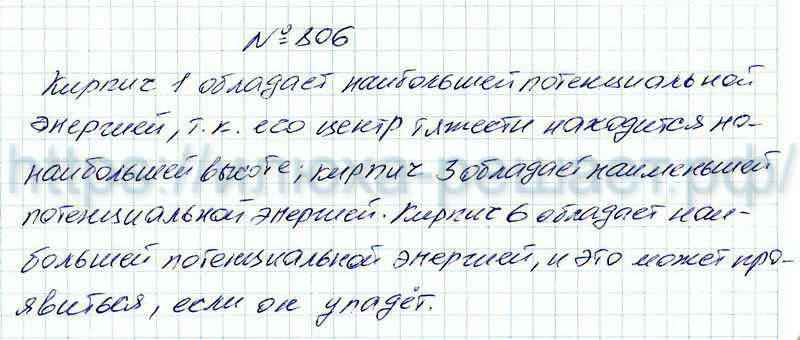 № 806
Кирпич 1 обладает наибольшей потенциальной
энергией, т.к. его центр тяжести находится на
наибольшей высоте; кирпич 3 обладает наименьшей
потенциальной энергией. Кирпич 6 обладает наи-
большей потенциальной энергией, и это может про-
явиться, если он упадёт.